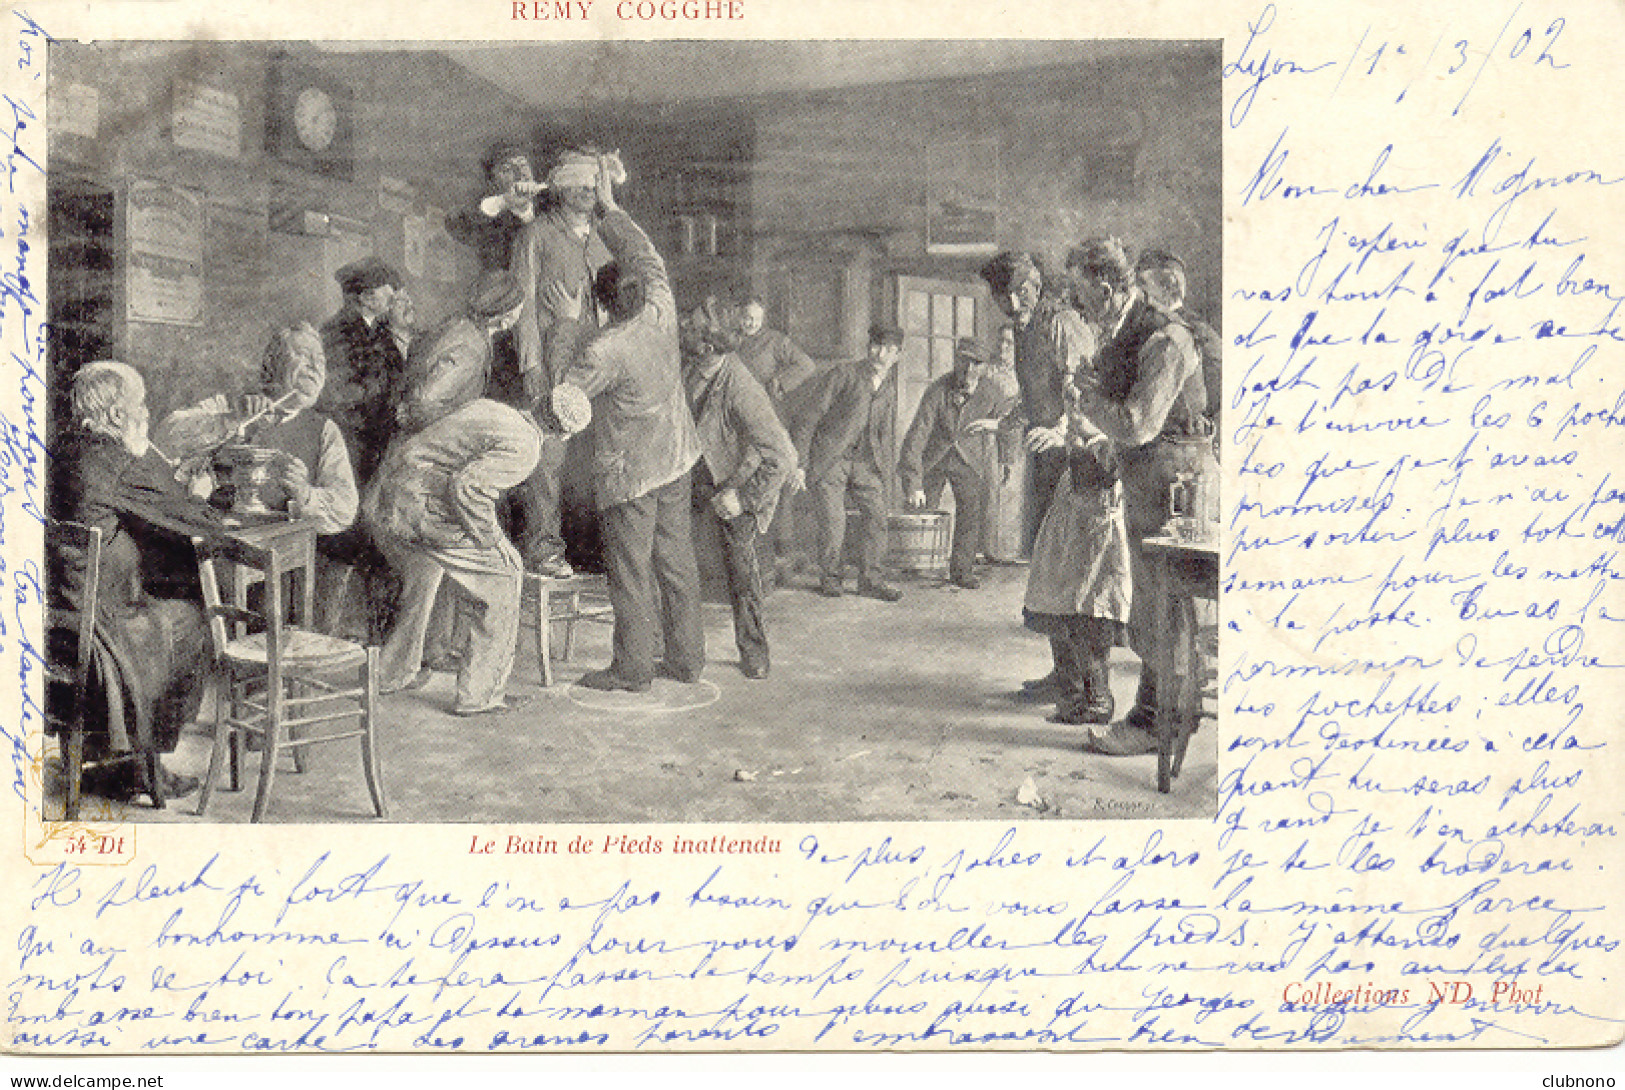 REMY COGGHE
Lyon / 1er / 3 / 02
Mon cher Mignon
J'espère que tu
vas tout à fait bien
et que la gorge ne te
fait pas de mal.
Je t'envoie les 6 poche
tes que je t'avais
promises. Je n'ai pas
pu sortir plus tot cette
semaine pour les mettre
à la poste. Tu as la
permission de perdre
tes pochettes ; elles
sont destinées à cela
quand tu seras plus
grand je t'en acheterai
54 Dt
Le Bain de Pieds inattendu
de plus jolies et alors je te les broderai.
Il pleut si fort que l'on a pas besoin que l'on vous fasse la même farce
qu'au bonhomme ci dessus pour vous mouiller les pieds. J'attends quelques
mots de toi. Ça te fera passer le temps puisque tu ne vas pas au lycée.
Collections ND Phot
Embrasse bien ton papa et ta maman pour nous aussi du Georges auquel j'envoie
aussi une carte. Les grands parents t'embrassent bien tendrement.
R. COGGHE
Ta tante qui